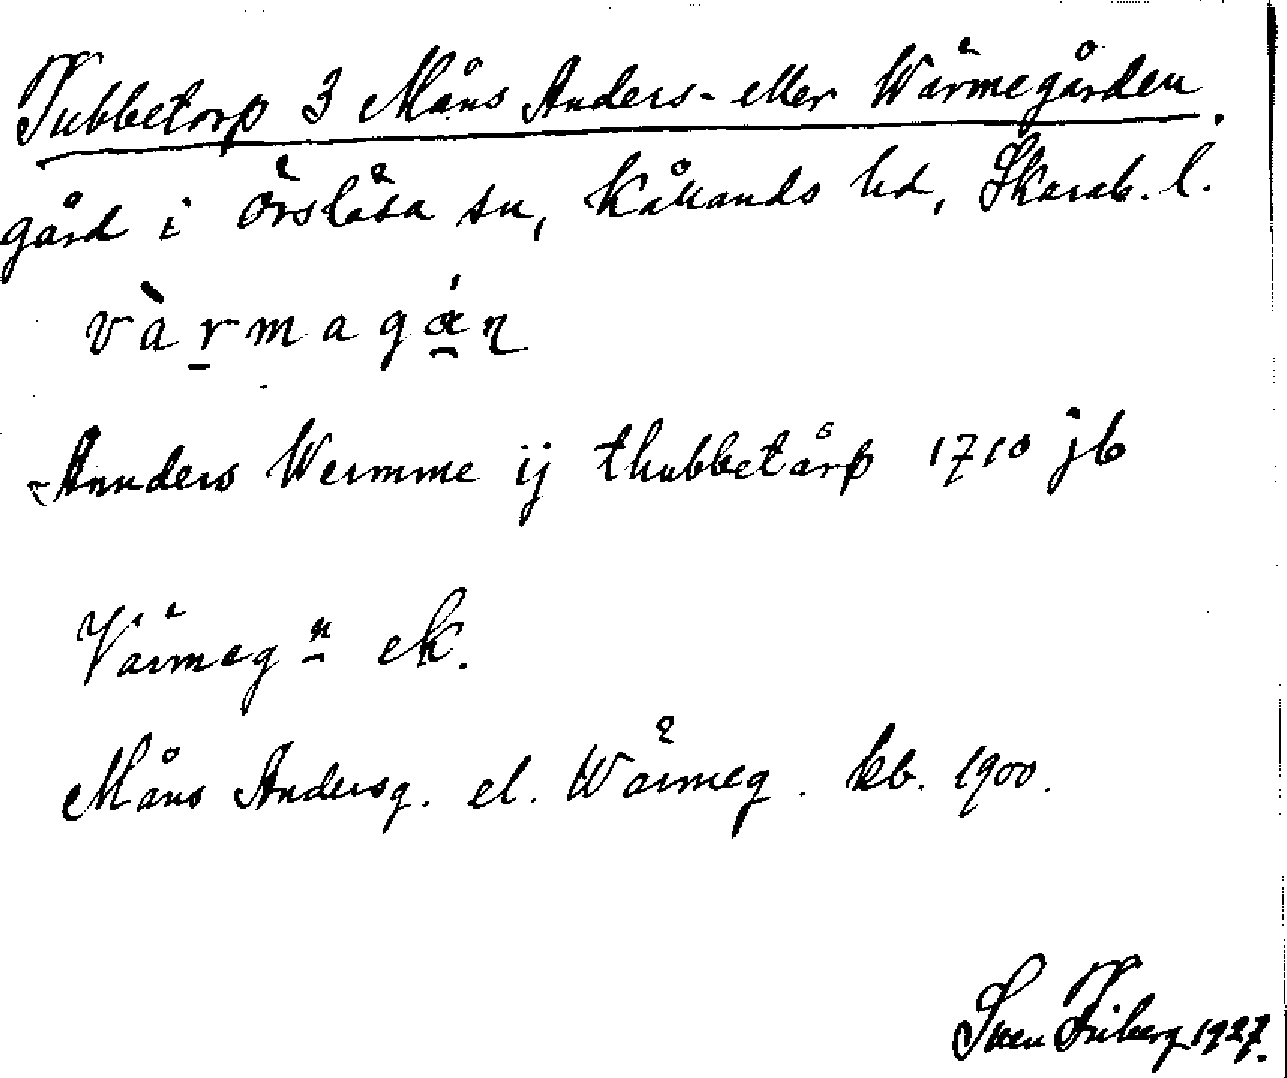 Tubbetorp 3 Måns Anders- eller Wärmegården.
gård i Örslösa sn, Kållands hd, Skarab. l.
vàrmagán
Annders Wermme ij thubbetårp 1710 jb
Värmegn ek.
Måns Andersg. el. Wärmeg. kb. 1900.
Sven Friberg 1927.